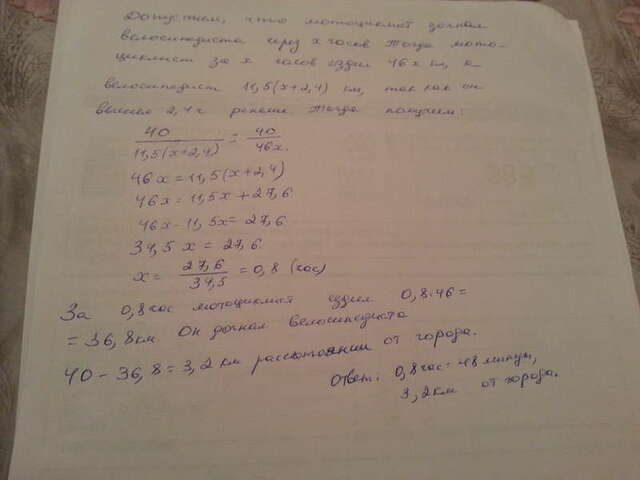 Допустим, что мотоциклист догнал
велосипедиста через x часов тогда мото-
циклист за x часов ездил 46x км, а
велосипедист 11,5(x+2,4) км, так как он
вышел 2,4 ч раньше тогда получим:
40/11,5(x+2,4) = 40/46x.
46x = 11,5(x+2,4)
46x = 11,5x + 27,6
46x - 11,5x = 27,6
34,5x = 27,6
x = 27,6/34,5 = 0,8 (час)
За 0,8 час мотоциклист ездил 0,8·46 =
= 36,8 км Он догнал велосипедиста
40 - 36,8 = 3,2 км расстоянии от города.
Ответ: 0,8 час = 48 минут,
3,2 км от города.